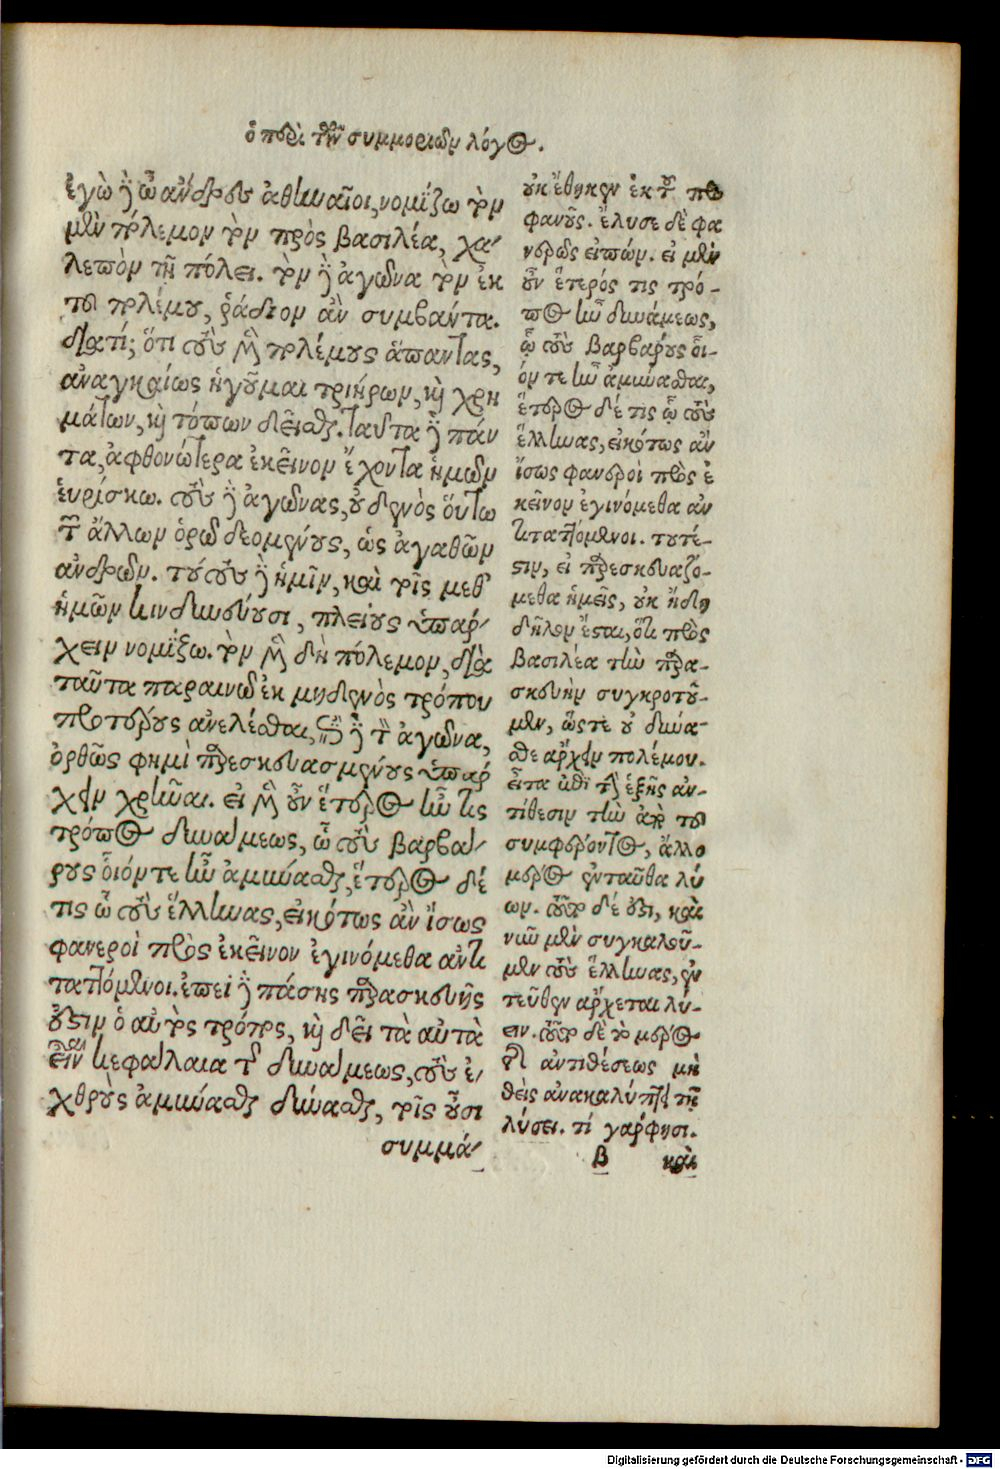 ὁ περὶ τῶν συμμοριῶν λόγος.
ἐγὼ δὲ ὦ ἄνδρες ἀθηναῖοι, νομίζω τὸν
μὲν πόλεμον τὸν πρὸς βασιλέα, χα-
λεπὸν τῇ πόλει. τὸν δὲ ἀγῶνα τὸν ἐκ
τοῦ πολέμου, ῥάδιον ἂν συμβάντα.
διατί; ὅτι τοὺς μὲν πολέμους ἅπαντας,
ἀναγκαίως ἡγοῦμαι τριήρων, καὶ χρη
μάτων, καὶ τόπων δεῖσθαι. ταῦτα δὲ πάν
τα, ἀφθονώτερα ἐκεῖνον ἔχοντα ἡμῶν
εὑρίσκω. τοὺς δὲ ἀγῶνας, οὐδενὸς οὕτω
τῶν ἄλλων ὁρῶ δεομένους, ὡς ἀγαθῶν
ἀνδρῶν. τούτους δὲ ἡμῖν, καὶ τοῖς μεθ'
ἡμῶν κινδυνεύουσι, πλείους ὑπάρ-
χειν νομίζω. τὸν μὲν δὴ πόλεμον, διὰ
ταῦτα παραινῶ ἐκ μηδενὸς τρόπου
προτέρους ἀνελέσθαι, ἐπὶ δὲ τὸν ἀγῶνα,
ὀρθῶς φημὶ παρεσκευασμένους ὑπάρ
χειν χρῆναι. εἰ μὲν οὖν ἕτερος ἦν τις
τρόπος δυνάμεως, ᾧ τοὺς βαρβά-
ρους οἷόν τε ἦν ἀμύνασθαι, ἕτερος δέ
τις ᾧ τοὺς ἕλληνας, εἰκότως ἂν ἴσως
φανεροὶ πρὸς ἐκεῖνον ἐγινόμεθα ἀντι
ταττόμενοι. ἐπεὶ δὲ πάσης παρασκευῆς
ἐστιν ὁ αὐτὸς τρόπος, καὶ δεῖ τὰ αὐτὰ
εἶναι κεφάλαια τῆς δυνάμεως, τοὺς ἐ-
χθροὺς ἀμύνασθαι δύνασθαι, τοῖς οὖσι
συμμά-
οὐκ ἔθηκεν ἐκ τοῦ προ
φανοῦς. ἔλυσε δὲ φα
νερῶς εἰπών. εἰ μὲν
οὖν ἕτερός τις τρό-
πος ἦν δυνάμεως,
ᾧ τοὺς βαρβάρους οἷ-
όν τε ἦν ἀμύνασθαι,
ἕτερος δέ τις ᾧ τοὺς
ἕλληνας, εἰκότως ἂν
ἴσως φανεροὶ πρὸς ἐ
κεῖνον ἐγινόμεθα ἀν
τιταττόμενοι. τουτέ-
στιν, εἰ παρεσκευαζό-
μεθα ἡμεῖς, οὐκ ἤδη
δῆλον ἔσται, ὅτι πρὸς
βασιλέα τὴν παρα-
σκευὴν συγκροτοῦ-
μεν, ὥστε οὐ δύνα-
σθε ἄρχειν πολέμου.
εἶτα ἐπεὶ τὴν ἑξῆς ἀν-
τίθεσιν τὴν ἀπὸ τοῦ
συμφέροντος, ἄλλο
μέρος ἐνταῦθα λύ
ων. ὅπερ δέ ἐστι, καὶ
νῦν μὲν συγκαλοῦ-
μεν τοὺς ἕλληνας, ἐν
τεῦθεν ἄρχεται λύ-
ειν. ὅπερ δὲ τὸ μέρος
τῆς ἀντιθέσεως μὴ
θεὶς ἀνακαλύπτει τῇ
λύσει. τί γάρ φησι.
β και
Digitalisierung gefördert durch die Deutsche Forschungsgemeinschaft - DFG